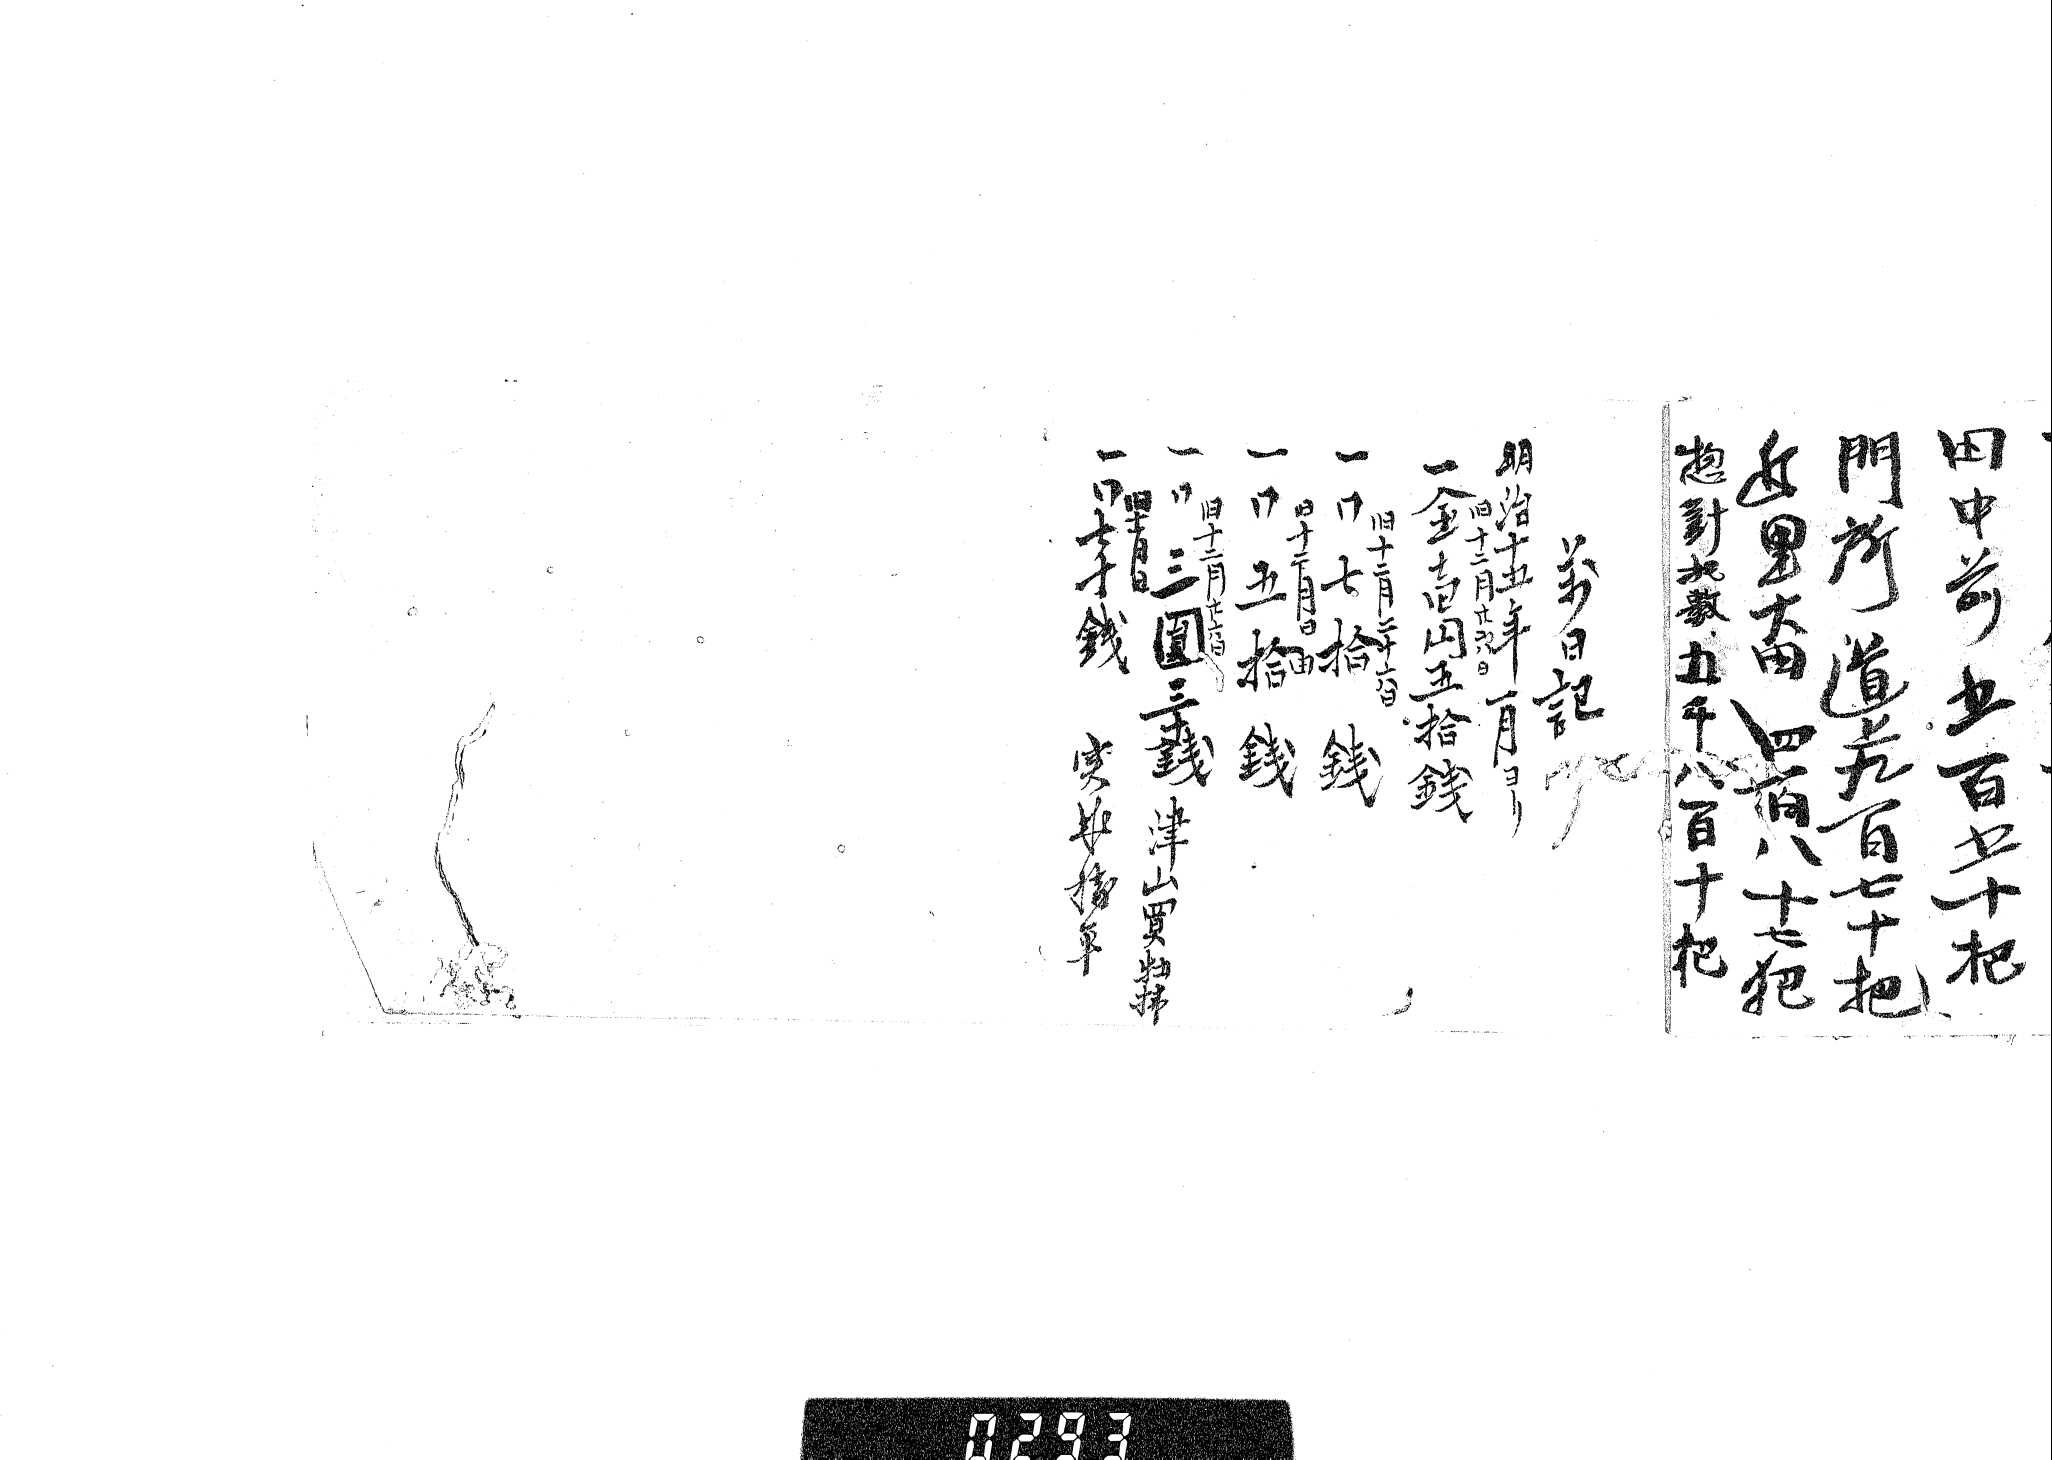 田中前 五百五十把
門所道 九百七十把
近里大田 四百八十七把
惣計把数 五千八百十把
萬日記
明治十五年一月ヨリ
旧十二月廿六日
一金壱円五拾銭
旧十二月二十六日
一〃七拾銭
旧十二月日
一〃五拾銭
旧十二月廿六日
一〃三圓三十銭 津山買物拂
旧十二月日
一〃七十銭
0293